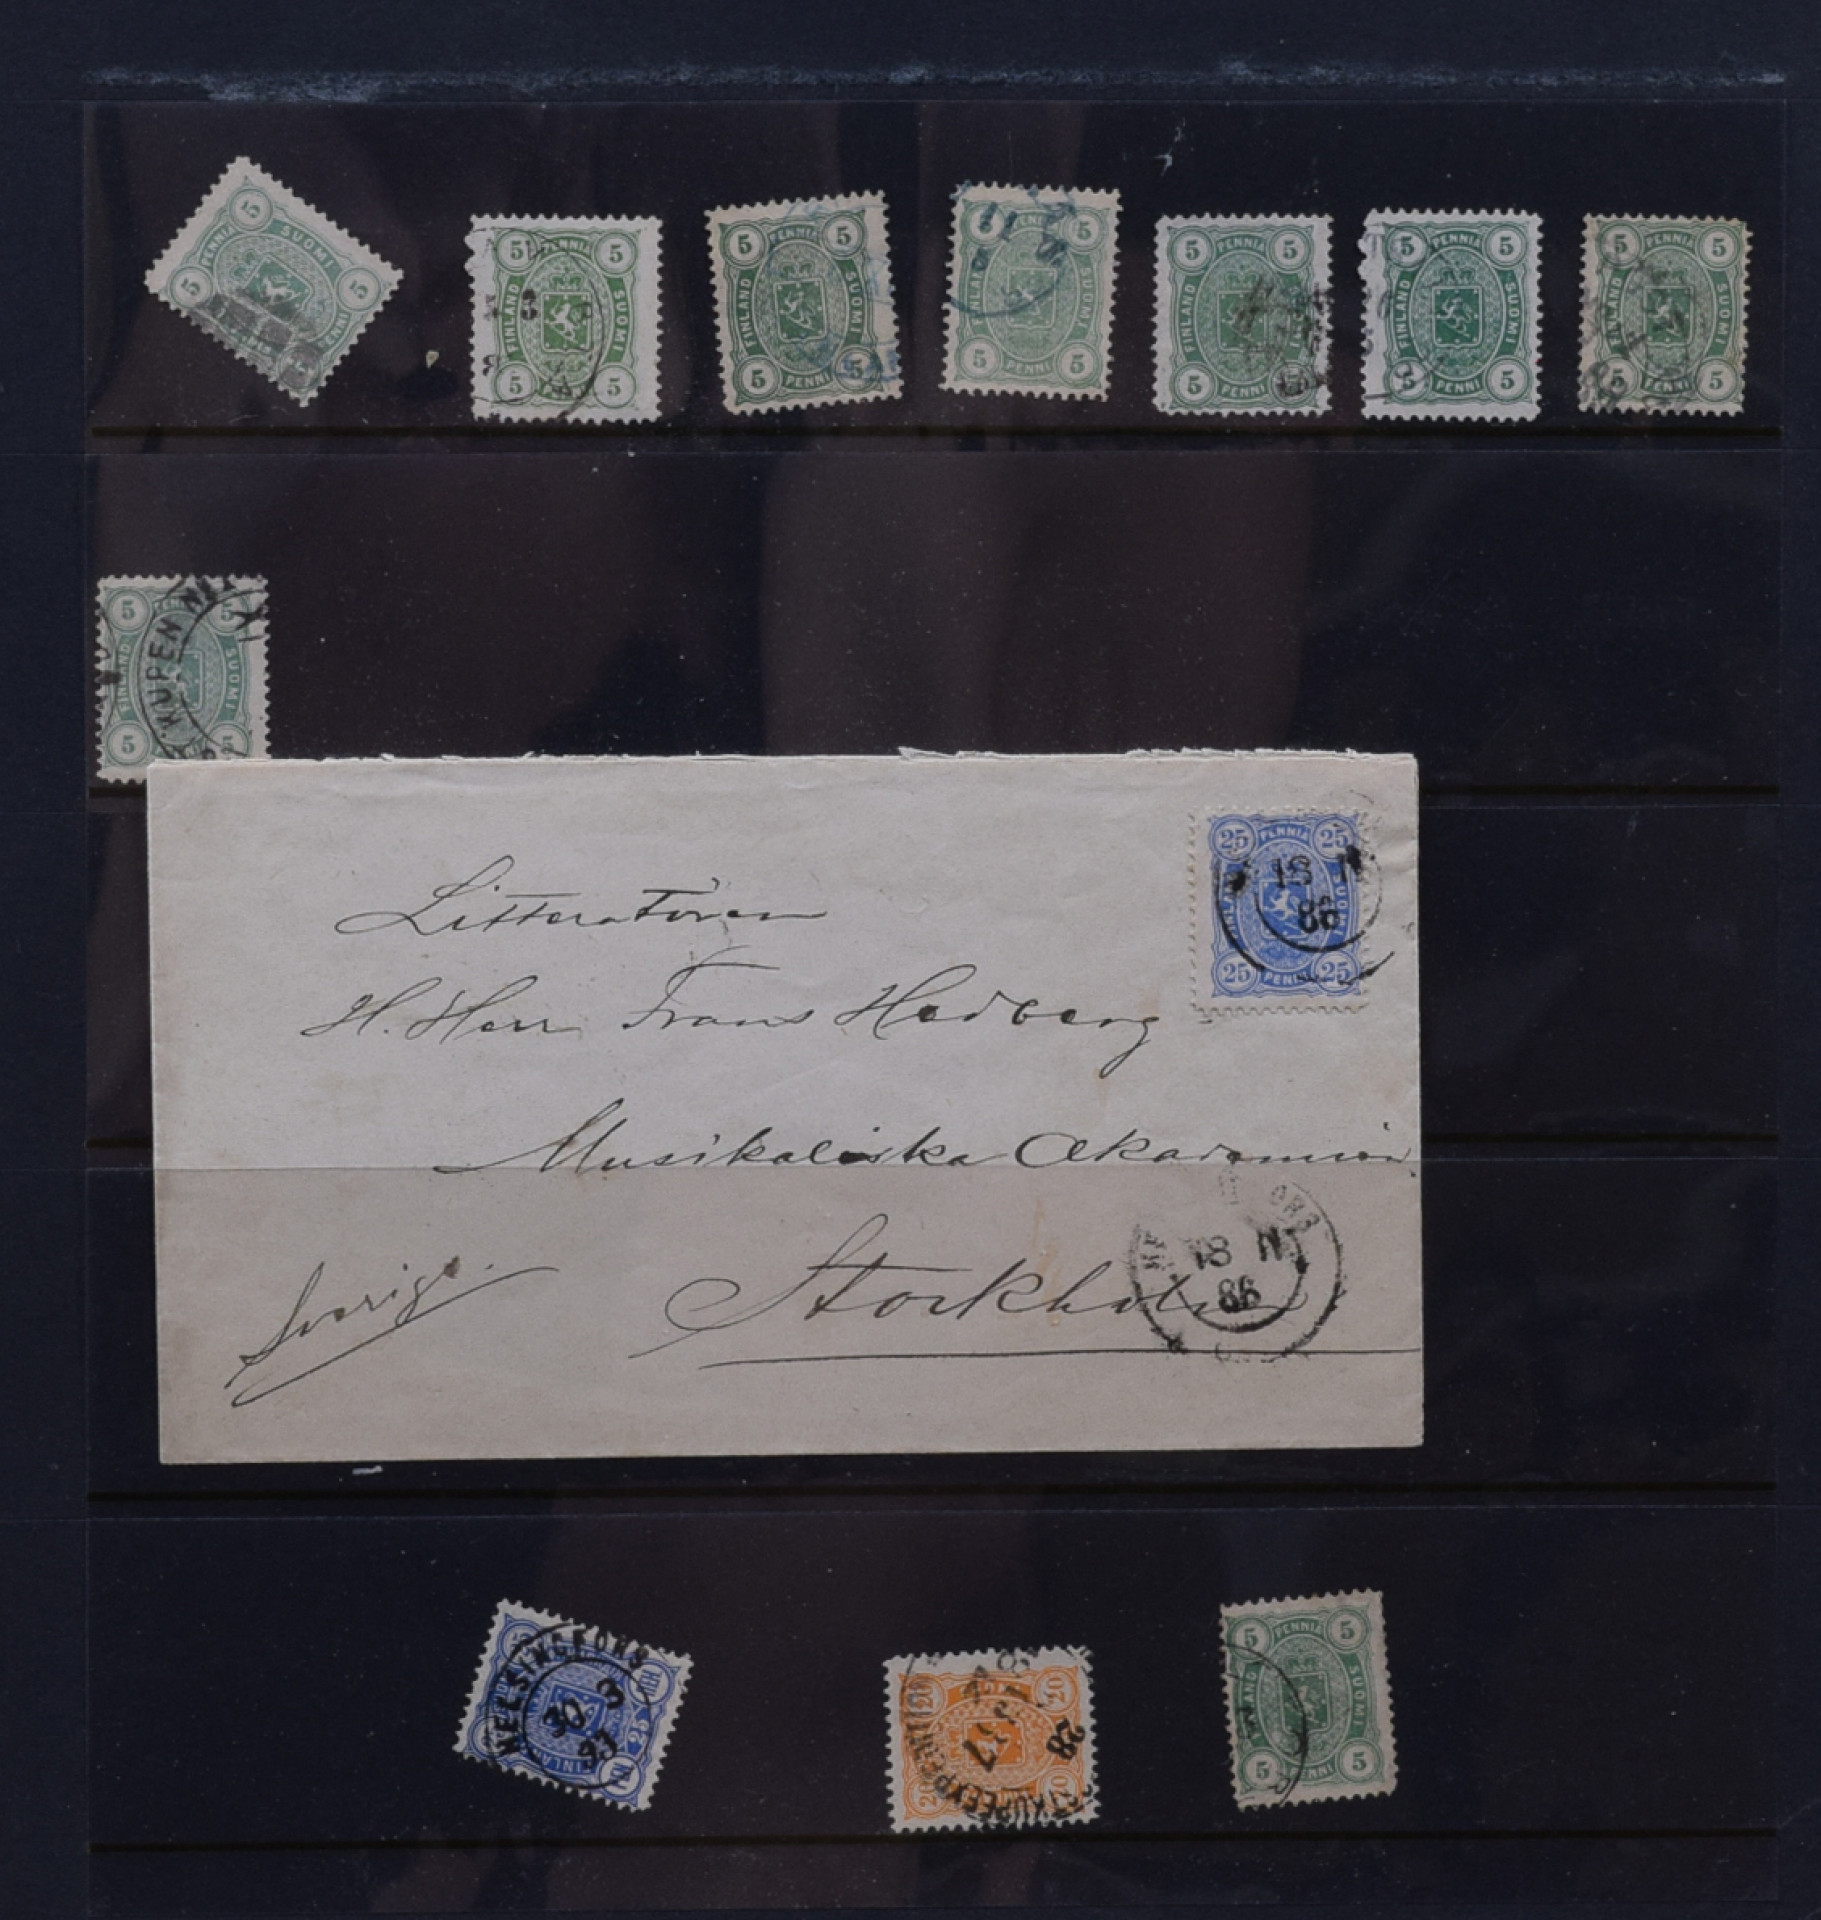 5 PENNIA 5 SUOMI 5 PENNI
5 PENNIA 5 FINLAND SUOMI 5 5
5 PENNIA 5 FINLAND SUOMI 5 PENNI 5
5 5 5 PENNI 5
5 PENNIA 5 FINLAND SUOMI 5 PENNI 5
5 PENNIA 5 FINLAND SUOMI 5 PENNI 5
5 PENNIA 5 FINLAND SUOMI 5 PENNI 5
5 5 FINLAND SUOMI 5 5
KUPEN NI
25 PENNIA 25
SUOMI
25 PENNI 25
18 II
86
Litteratören
H. Herr Frans Hedberg
Musikaliska Akademien.
Stockholm
Sverige.
18 II
86
HELSINGFORS
30 3
93
FINLAND
20 20
KUPEEXPEDITION
28
5 PENNIA 5
SUOMI
5 PENNI 5